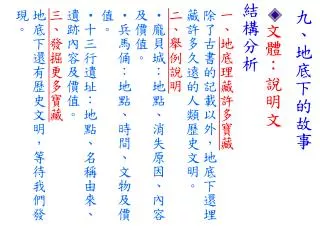 九、地底下的故事
◈文體：說明文
結構分析
一、地底理藏許多寶藏
除了古書的記載以外，地底下還埋
藏許多久遠的人類歷史文明。
二、舉例說明
‧龐貝城：地點、消失原因、內容
及價值。
‧兵馬俑：地點、時間、文物及價
值。
‧十三行遺址：地點、名稱由來、
遺跡內容及價值。
三、發掘更多寶藏
地底下還有歷史文明，等待我們發
現。